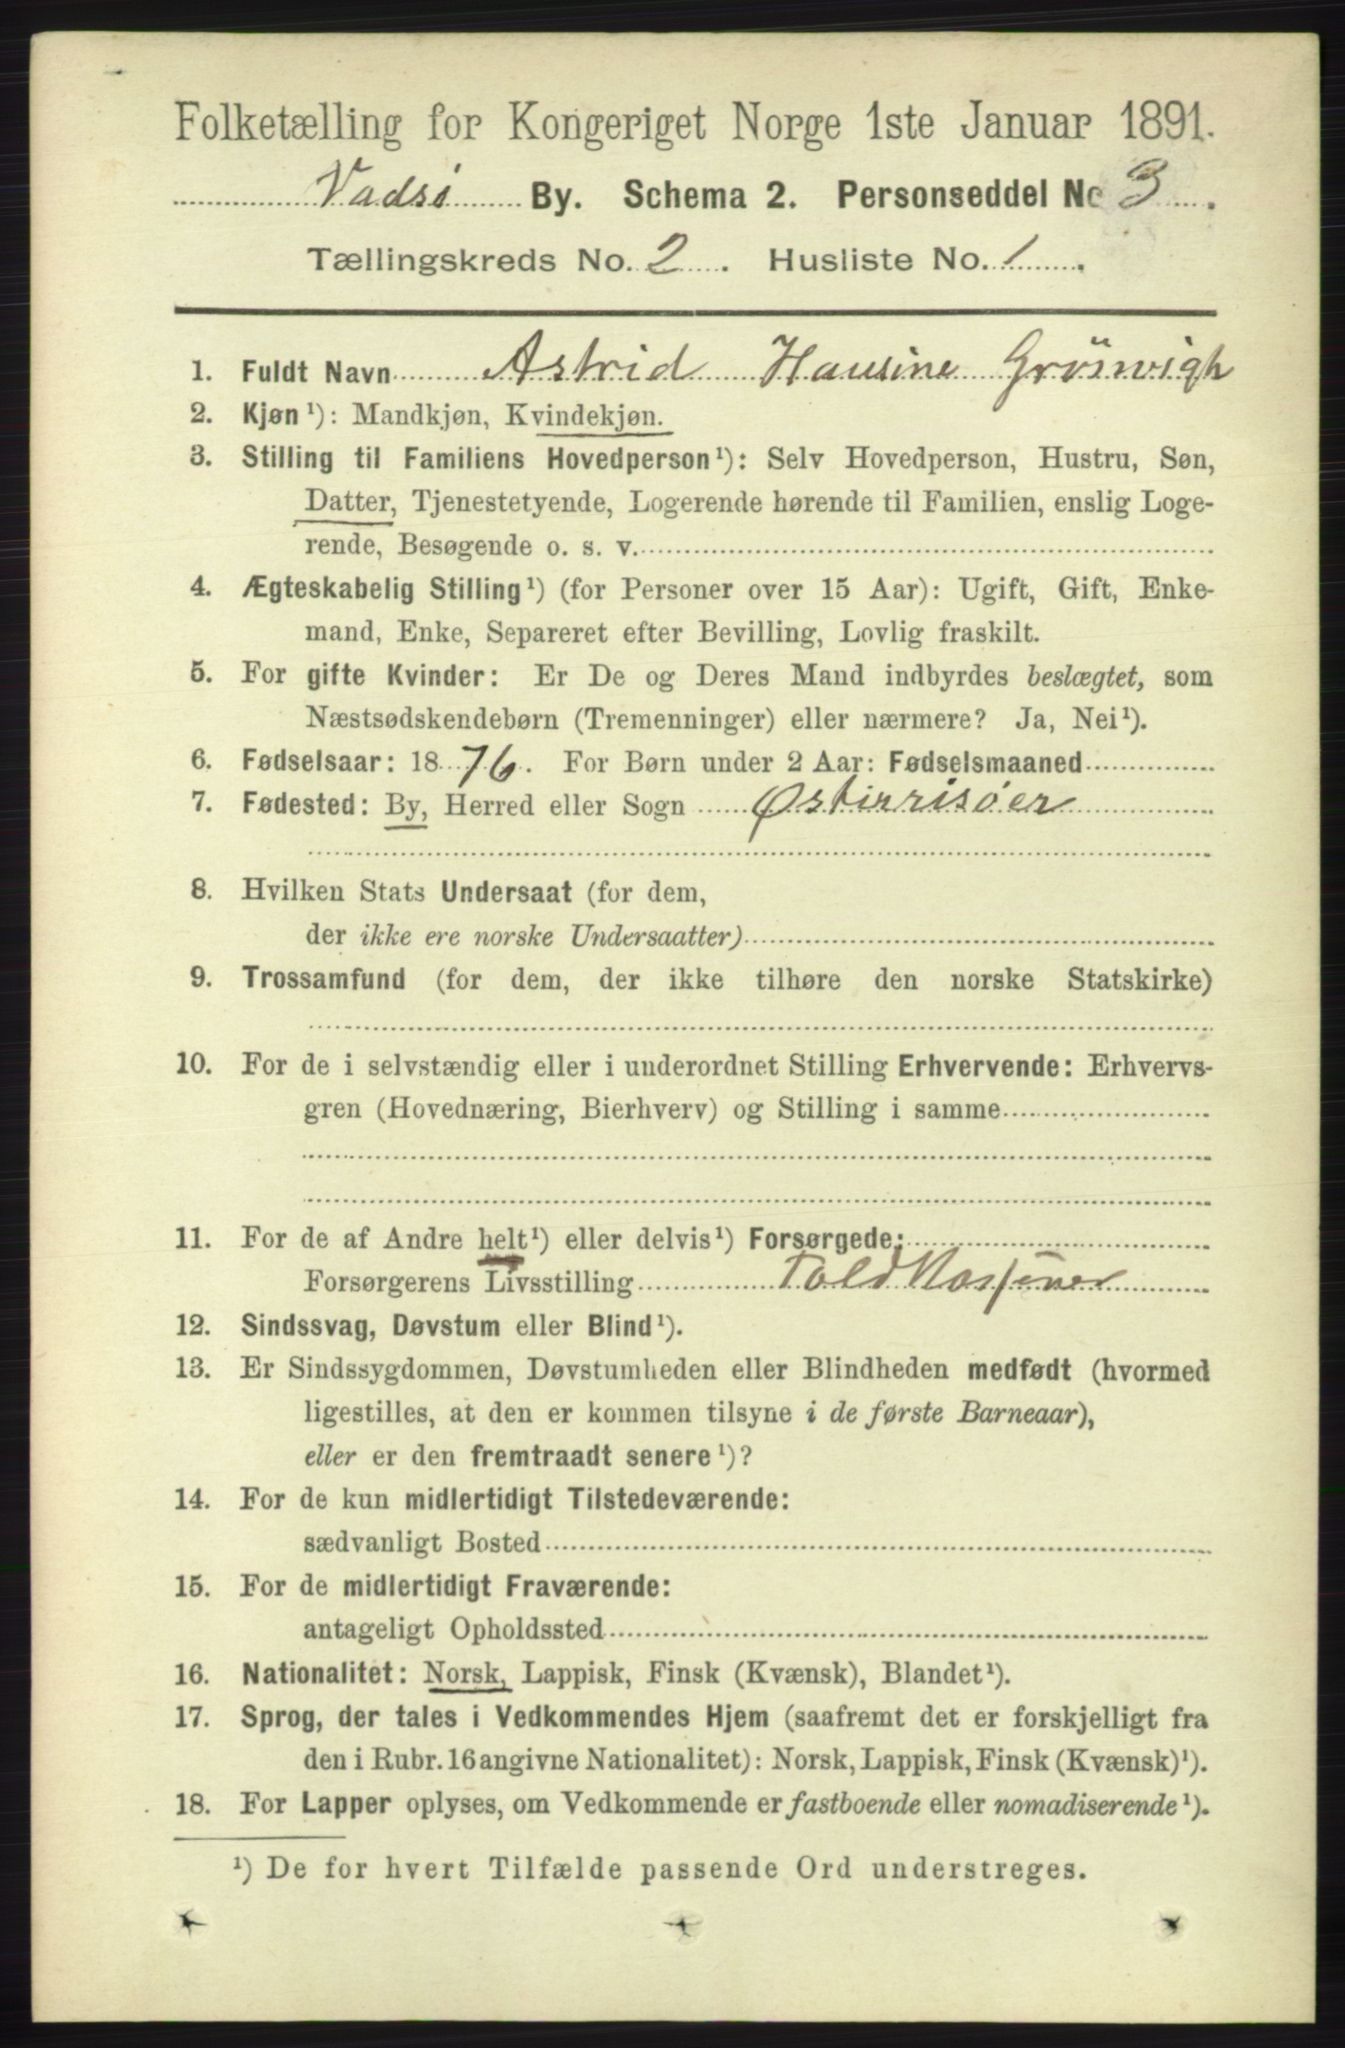 Folketælling for Kongeriget Norge 1ste Januar 1891.
Vadsø By. Schema 2. Personseddel No 3.
Tællingskreds No. 2. Husliste No. 1.
1. Fuldt Navn Astrid Hansine Grønvigh
2. Kjøn ¹): Mandkjøn, Kvindekjøn.
3. Stilling til Familiens Hovedperson ¹): Selv Hovedperson, Hustru, Søn,
Datter, Tjenestetyende, Logerende hørende til Familien, enslig Loge-
rende, Besøgende o. s. v.
4. Ægteskabelig Stilling ¹) (for Personer over 15 Aar): Ugift, Gift, Enke-
mand, Enke, Separeret efter Bevilling, Lovlig fraskilt.
5. For gifte Kvinder: Er De og Deres Mand indbyrdes beslægtet, som
Næstsødskendebørn (Tremenninger) eller nærmere? Ja, Nei ¹).
6. Fødselsaar: 1876. For Børn under 2 Aar: Fødselsmaaned
7. Fødested: By, Herred eller Sogn Østerrisøer
8. Hvilken Stats Undersaat (for dem,
der ikke ere norske Undersaatter)
9. Trossamfund (for dem, der ikke tilhøre den norske Statskirke)
10. For de i selvstændig eller i underordnet Stilling Erhvervende: Erhvervs-
gren (Hovednæring, Bierhverv) og Stilling i samme
11. For de af Andre helt ¹) eller delvis ¹) Forsørgede:
Forsørgerens Livsstilling Toldkasserer
12. Sindssvag, Døvstum eller Blind ¹).
13. Er Sindssygdommen, Døvstumheden eller Blindheden medfødt (hvormed
ligestilles, at den er kommen tilsyne i de første Barneaar),
eller er den fremtraadt senere ¹)?
14. For de kun midlertidigt Tilstedeværende:
sædvanligt Bosted
15. For de midlertidigt Fraværende:
antageligt Opholdssted
16. Nationalitet: Norsk, Lappisk, Finsk (Kvænsk), Blandet ¹).
17. Sprog, der tales i Vedkommendes Hjem (saafremt det er forskjelligt fra
den i Rubr. 16 angivne Nationalitet): Norsk, Lappisk, Finsk (Kvænsk) ¹).
18. For Lapper oplyses, om Vedkommende er fastboende eller nomadiserende ¹).
¹) De for hvert Tilfælde passende Ord understreges.